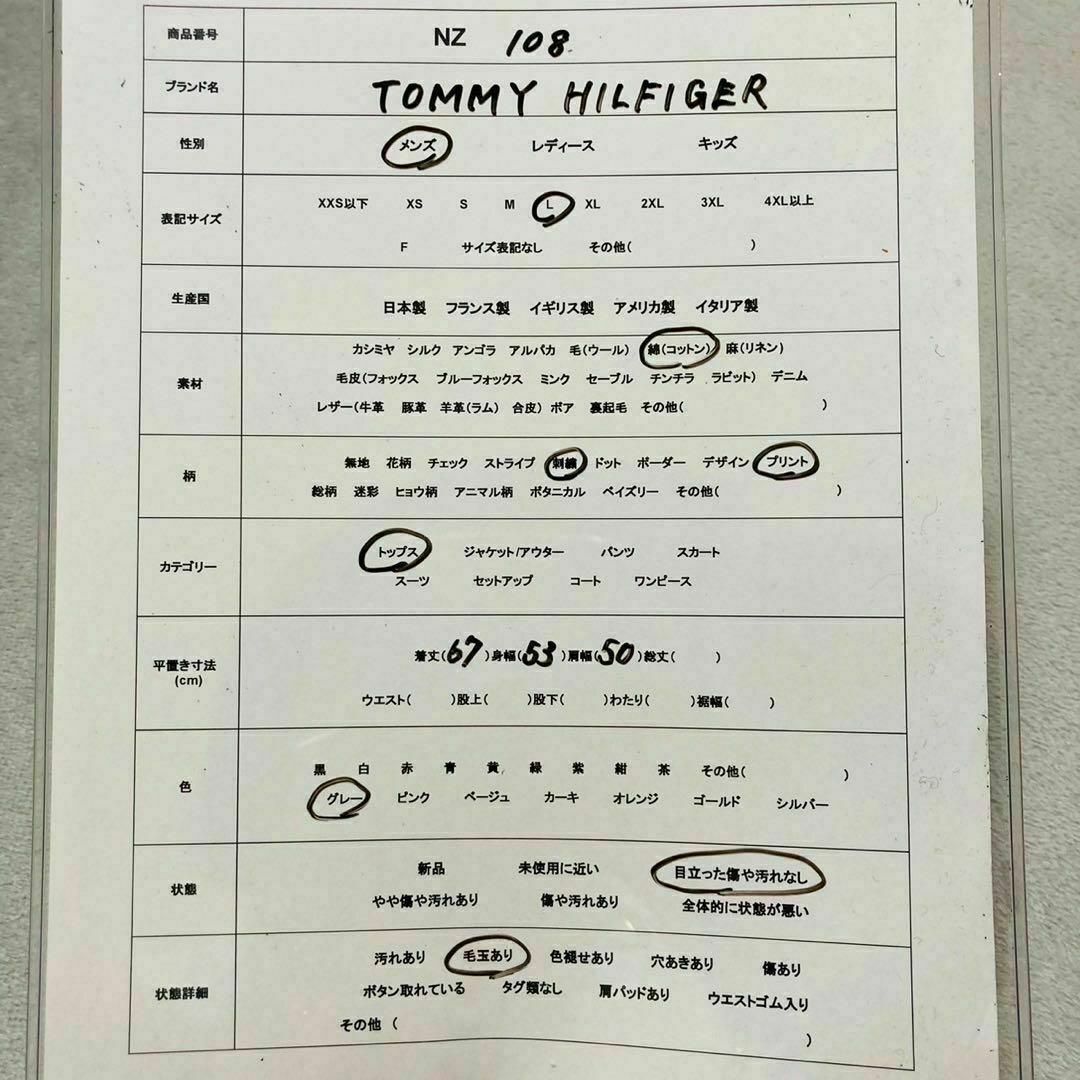 商品番号 NZ 108
ブランド名 TOMMY HILFIGER
性別 メンズ レディース キッズ
表記サイズ XXS以下 XS S M L XL 2XL 3XL 4XL以上
F サイズ表記なし その他( )
生産国 日本製 フランス製 イギリス製 アメリカ製 イタリア製
素材 カシミヤ シルク アンゴラ アルパカ 毛(ウール) 綿(コットン) 麻(リネン)
毛皮(フォックス ブルーフォックス ミンク セーブル チンチラ ラビット) デニム
レザー(牛革 豚革 羊革(ラム) 合皮) ボア 裏起毛 その他( )
柄 無地 花柄 チェック ストライプ 刺繍 ドット ボーダー デザイン プリント
総柄 迷彩 ヒョウ柄 アニマル柄 ボタニカル ペイズリー その他( )
カテゴリー トップス ジャケット/アウター パンツ スカート
スーツ セットアップ コート ワンピース
平置き寸法 (cm) 着丈(67)身幅(53)肩幅(50)総丈( )
ウエスト( )股上( )股下( )わたり( )裾幅( )
色 黒 白 赤 青 黄 緑 紫 紺 茶 その他( )
グレー ピンク ベージュ カーキ オレンジ ゴールド シルバー
状態 新品 未使用に近い 目立った傷や汚れなし
やや傷や汚れあり 傷や汚れあり 全体的に状態が悪い
状態詳細 汚れあり 毛玉あり 色褪せあり 穴あきあり 傷あり
ボタン取れている タグ類なし 肩パッドあり ウエストゴム入り
その他 ( )